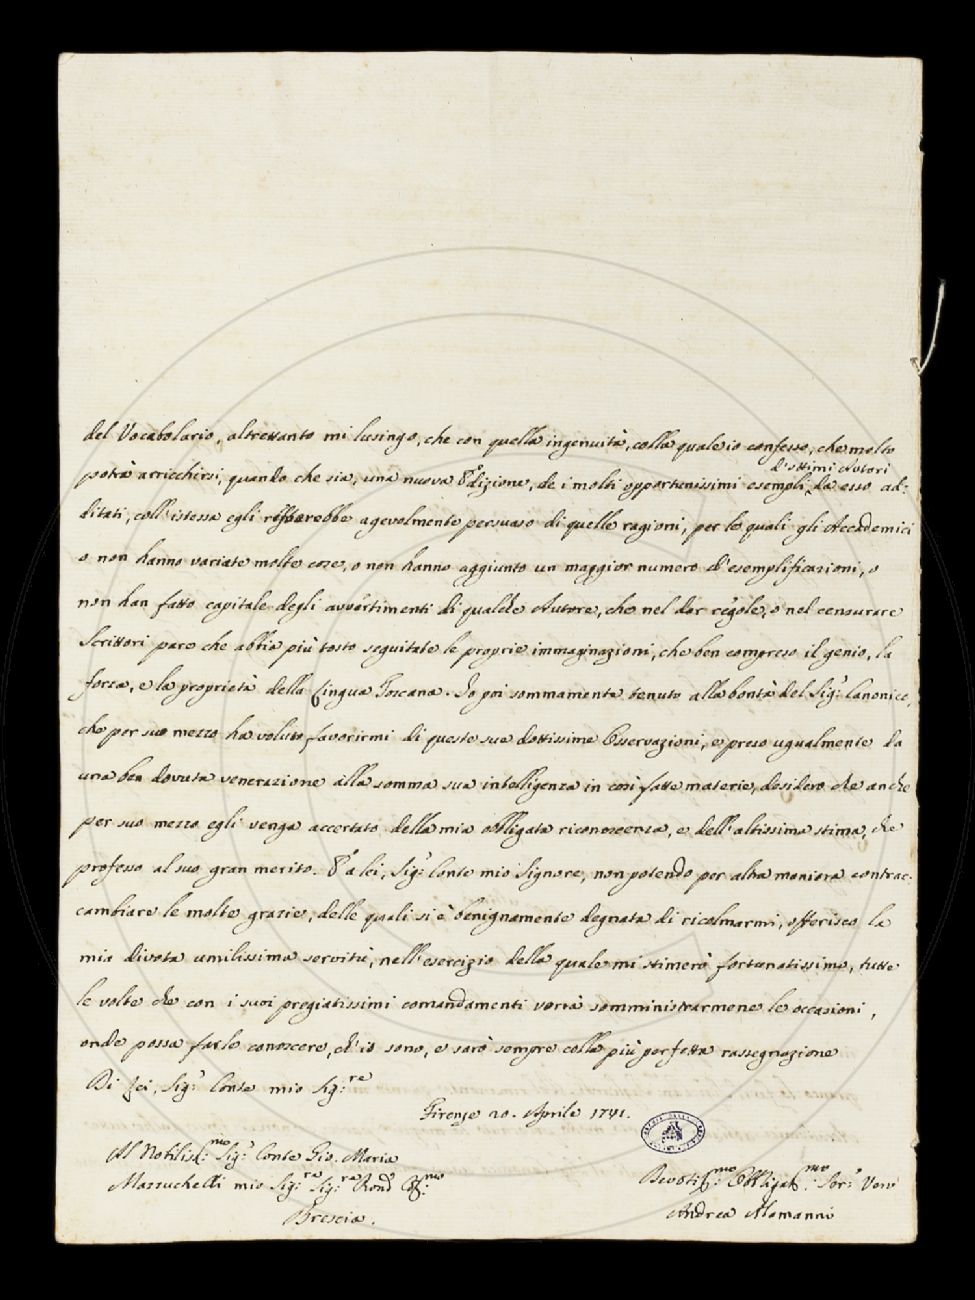 del Vocabolario, altrettanto mi lusingo, che con quella ingenuità, colla quale io confesso, che molto
d'ottimi Autori
potrà arricchirsi, quando che sia, una nuova Edizione, de i molti opportunissimi esempli, da esso ad-
ditati, coll'istessa egli resterebbe agevolmente persuaso di quelle ragioni, per le quali gli Accademici
o non hanno variate molte cose, o non hanno aggiunto un maggior numero d'esemplificazioni, o
non han fatto capitale degli avvertimenti di qualche Autore, che nel dar regole, o nel censurare
Scrittori pare che abbia più tosto seguitate le proprie immaginazioni, che ben compreso il genio, la
forza, e la proprietà della Lingua Toscana. Io poi sommamente tenuto alla bontà del Sig.r Canonico,
che per suo mezzo ha voluto favorirmi di queste sue dottissime Osservazioni, e preso ugualmente da
una ben dovuta venerazione alla somma sua intelligenza in così fatte materie, desidero che anche
per suo mezzo egli venga accertato della mia obbligata riconoscenza, e dell'altissima stima, che
professo al suo gran merito. E a lei, Sig.r Conte mio Signore, non potendo per altra maniera contrac-
cambiare le molte grazie, delle quali si è benignamente degnata di ricolmarmi, offerisco la
mia divota umilissima servitù, nell'esercizio della quale mi stimerò fortunatissimo, tutte
le volte che con i suoi pregiatissimi comandamenti vorrà somministrarmene le occasioni,
onde possa farle conoscere, ch'io sono, e sarò sempre colla più perfetta rassegnazione
Di Lei, Sig.r Conte mio Sig.re
Firenze 20. Aprile 1741.
Al Nobiliss.mo Sig.r Conte Gio. Maria
Mazzuchelli mio Sig.re Sig.re Pron. Col.mo
Brescia.
Devotiss.mo Obbligatiss.mo Ser.r Vero
Andrea Alamanni